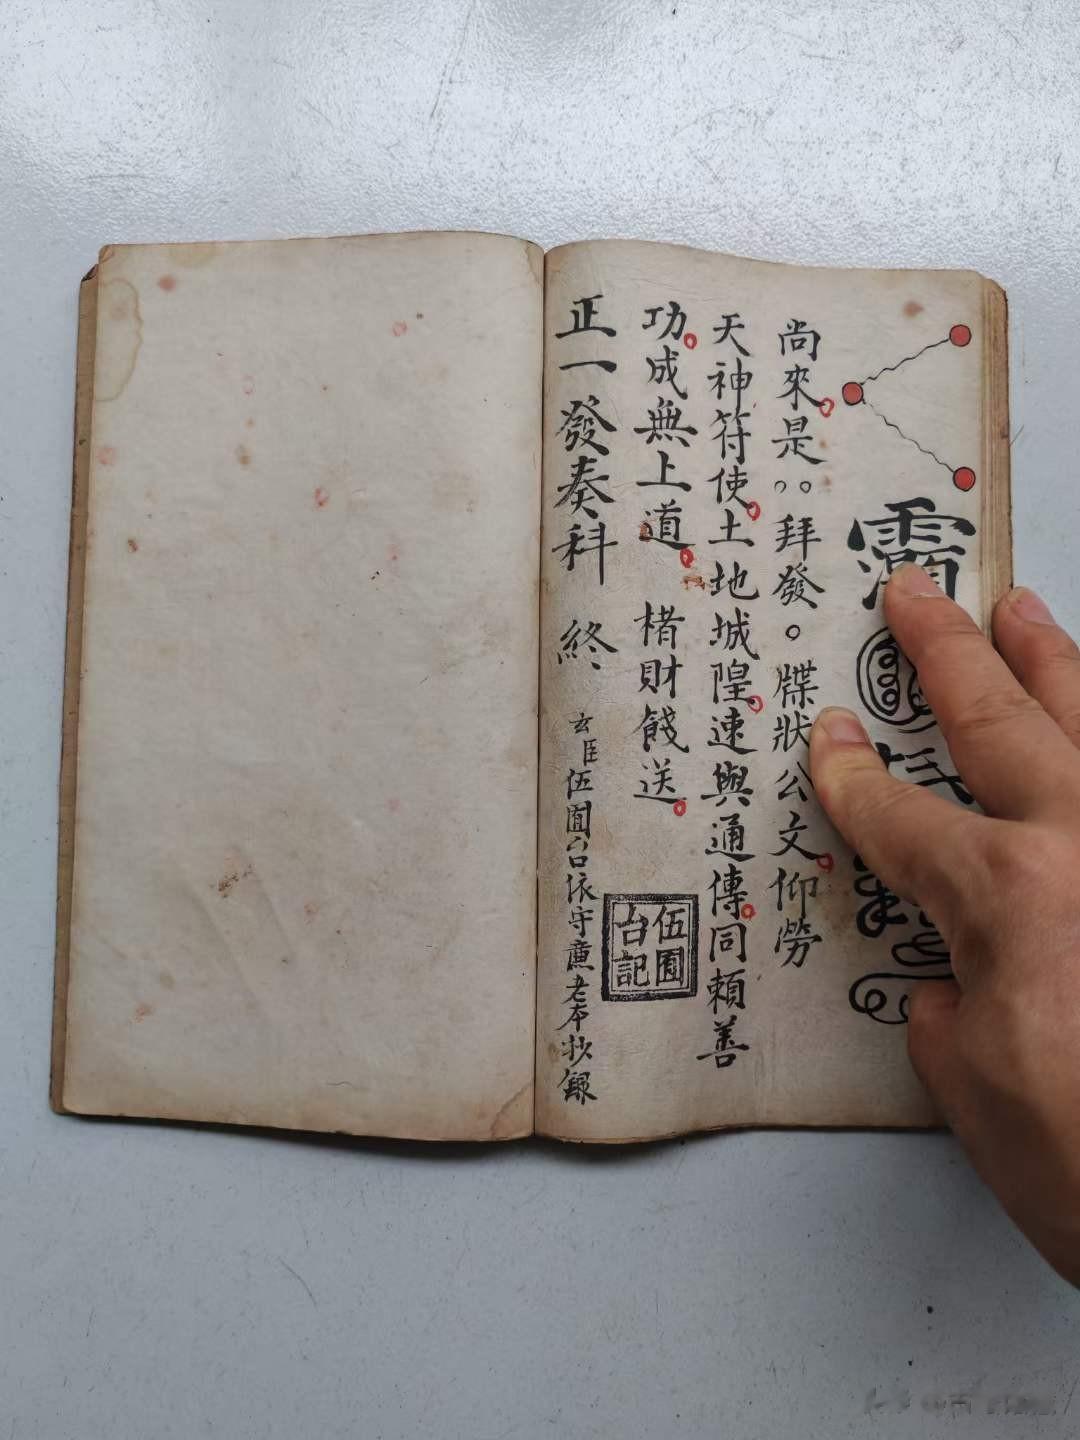 尚來是。。拜發。牒狀公文仰勞
天神符使土地城隍速與通傳同賴善
功成無上道 楮財餞送
正一發奏科 終
玄臣伍囿台依守蕋老本抄錄
伍囿
台記